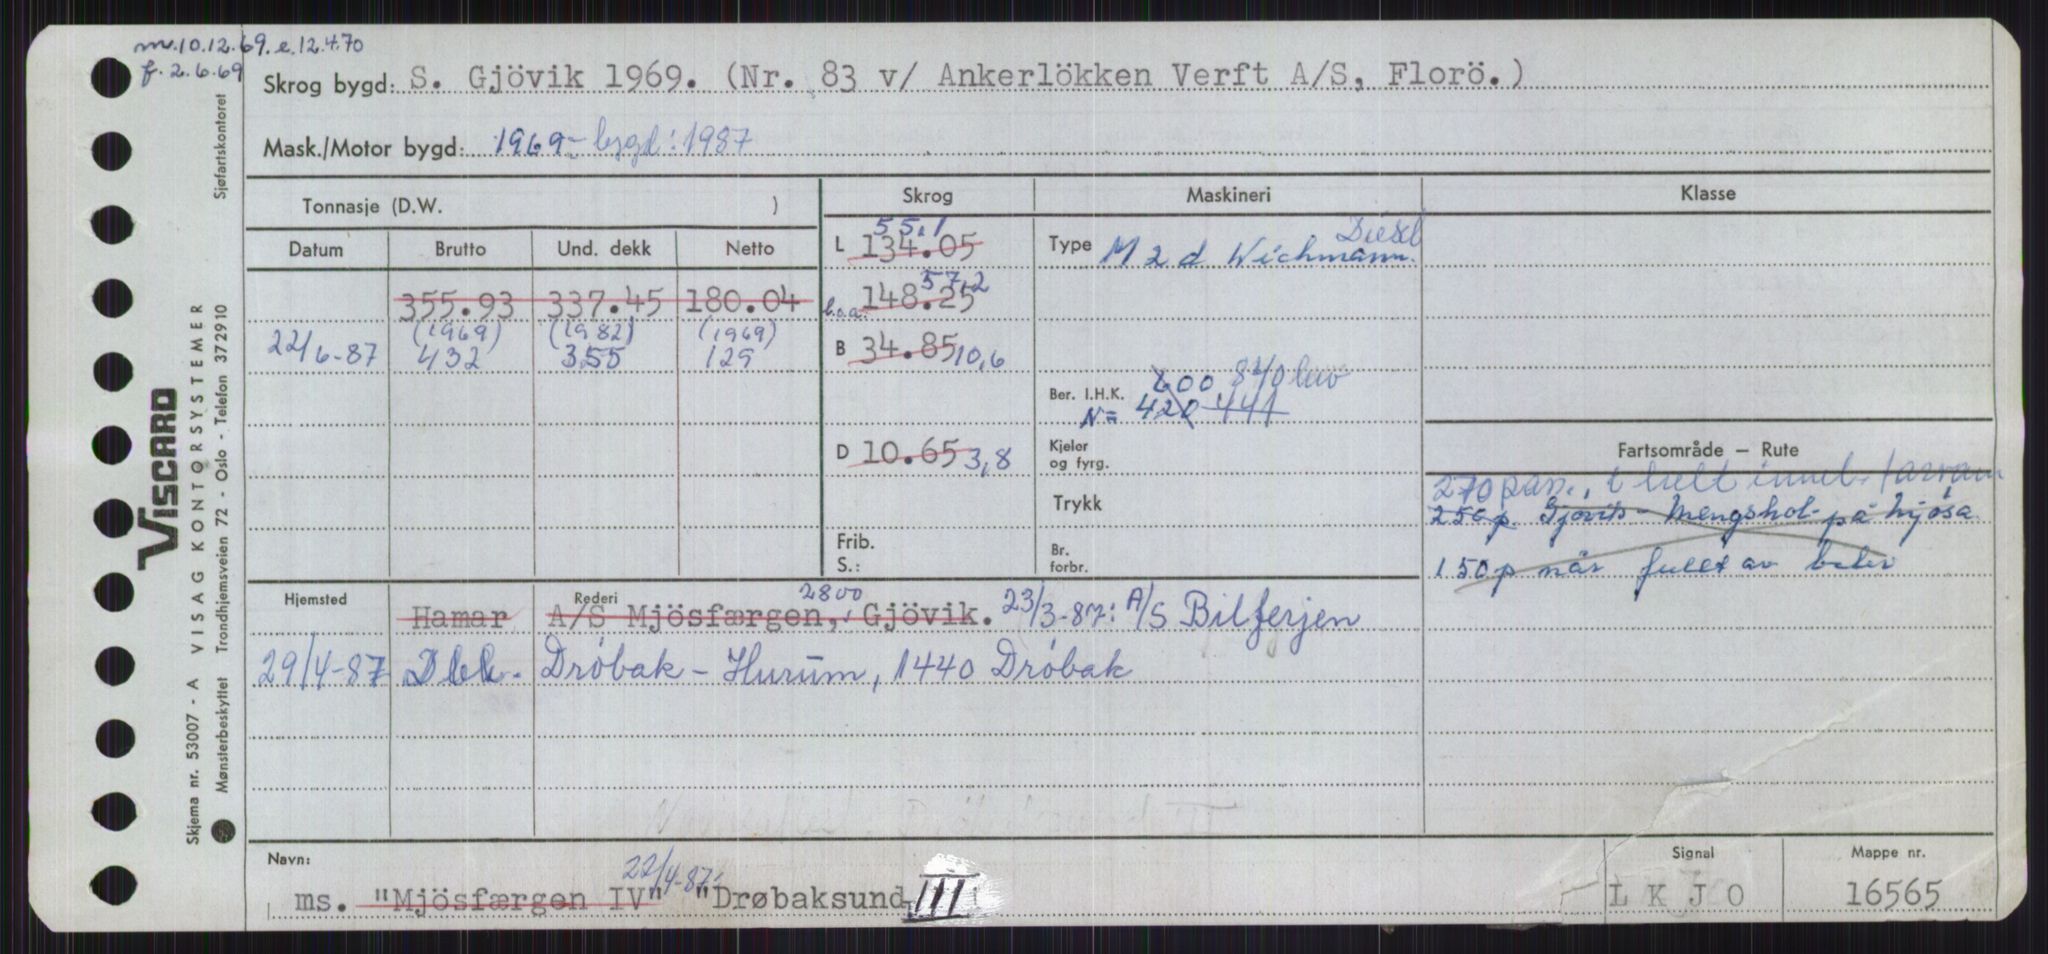 m. 10.12.69. e. 12.4.70
f. 2.6.69
Skrog bygd: S. Gjövik 1969. (Nr. 83 v/ Ankerlökken Verft A/S, Florö.)
Mask./Motor bygd: 1969 - bygd: 1987
Tonnasje (D.W. )
Skrog
Maskineri
Klasse
Datum Brutto Und. dekk Netto
355.93 337.45 180.04
(1969) (1982) (1969)
22/6-87 432 355 129
55,1
L 134.05
57,2
l.o.a. 148.25
B 34.85 10,6
D 10.65 3,8
Frib.
S.:
Diesel
Type M 2 d Wichmann.
600 840 bhv
Ber. I.H.K.
N= 420 441
Kjeler
og fyrg.
Trykk
Br.
forbr.
Fartsområde — Rute
270 pass., i helt innel. farvann
250 p. Gjøvik - Mengshol - på Mjøsa
150 p når fullt av biler
Hjemsted Rederi
2800
Hamar A/S Mjösfærgen, Gjövik. 23/3-87: A/S Bilferjen
29/4-87 Dbk. Drøbak - Hurum, 1440 Drøbak
Navn:
22/4-87:
ms. "Mjösfærgen IV" "Drøbaksund III
Signal
L K J O
Mappe nr.
16565
VISCARD
Skjema nr. 53007 - A VISAG KONTORSYSTEMER
Mønsterbeskyttet Trondhjemsveien 72 - Oslo - Telefon 372910 Sjøfartskontoret